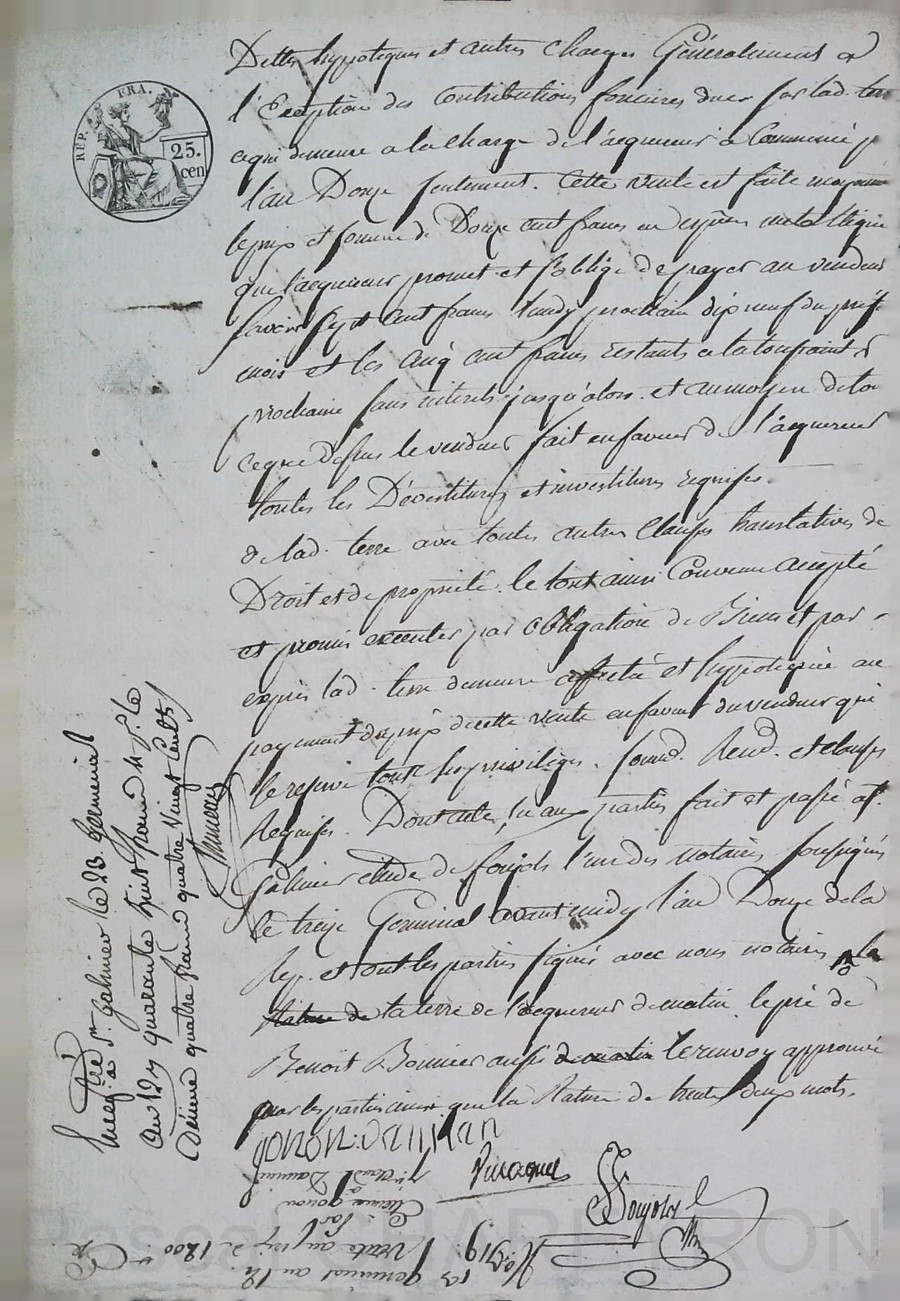 REP. FRA.
25.
cen
Dettes hypoteques et autres charges Généralement a
l'Exeption des Contributions foncieres dues par lad. terre
ce qui demeure a la charge de l'acquereur a Commencé p
l'an Douze seulement. Cette vente est faite moyennant
le prix et somme de Douze cent francs en espèces metallique
que l'acquereur promet et s'oblige de payer au vendeur
savoir sept cent francs lundy prochain dix neuf du prést
mois et les cinq cent francs restants a la toussaint
prochaine sans interets jusqu'alors. et au moyen de tou
ce que Dessus le vendeur fait en faveur de l'acquereur
toutes les Dévestitures et investitures requises.
de lad. terre avec toutes autres Clauses translatives de
Droit et de propriété. le tout ainsi Convenu accepté
et promis executer par obligation de Biens et par
exprès lad. terre demeure affectée et hypotéquée au
payement du prix de cette vente en faveur du vendeur qui
se reserve tout ses privilèges. soumis. Rend. et clauses
Requises. Dont acte, lu aux parties fait et passé a St.
Galmier etude de Soujols l'un des notaires soussignés
le treize Germinal avant midy l'an Douze de la
Rep. et ont les parties signé avec nous notaires la
Rature de la terre de l'acquereur de matin le pré de
Benoit Bonnier aussi de matin le renvoy approuvé
par les parties ainsi que la Rature de trente deux mots.
gonon. Damman
Vincquer
Soujols
Enregistré a St. galmier le 23 Germinal
an 12 quarante huit francs
Décime quatre francs quatre vingt Cents
No. 319
13 germinal an 12.
vente au prix de 1200
par
Etienne gonon
a